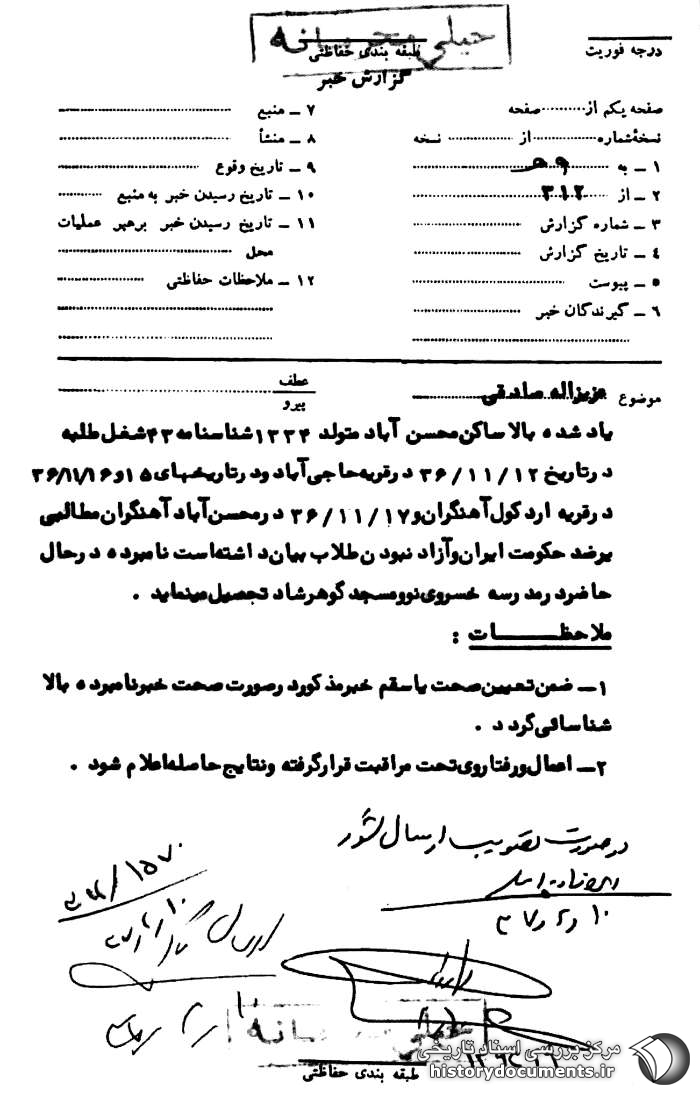 خیلی محرمانه
طبقه بندی حفاظتی
درجه فوریت
گزارش خبر
صفحه یکم از ........ صفحه
نسخهٔ شماره ............ از ............ نسخه
۱ ــ به ۹ﻫ
۲ ــ از ۳۱۲
۳ ــ شماره گزارش
۴ ــ تاریخ گزارش
۵ ــ پیوست
۶ ــ گیرندگان خبر
۷ ــ منبع
۸ ــ منشأ
۹ ــ تاریخ وقوع
۱۰ ــ تاریخ رسیدن خبر به منبع
۱۱ ــ تاریخ رسیدن خبر برهبر عملیات
محل
۱۲ ــ ملاحظات حفاظتی
موضوع عزیزاله صادقی
عطف
پیرو
یاد شده بالا ساکن محسن آباد متولد ۱۳۳۴ شناسنامه ۴۳ شغل طلبه
در تاریخ ۳۶/۱۱/۱۲ در قریه حاجی آباد و در تاریخهای ۱۵ و ۳۶/۱۱/۱۶
در قریه ارد کول آهنگران و ۳۶/۱۱/۱۷ در محسن آباد آهنگران مطالبی
برضد حکومت ایران و آزاد نبودن طلاب بیان داشته است نامبرده در حال
حاضر در مدرسه خسروی نو و مسجد گوهرشاد تحصیل مینماید .
ملاحظـــــات :
۱ــ ضمن تعیین صحت یا سقم خبر مذکور در صورت صحت خبر نامبرده بالا
شناسائی گردد .
۲ــ اعمال و رفتار وی تحت مراقبت قرار گرفته و نتایج حاصله اعلام شود .
در صورت تصویب ارسال شود
۱۰ ر ۲ ر ۳۷
خیلی محرمانه
طبقه بندی حفاظتی
مرکز بررسی اسناد تاریخی
historydocuments.ir